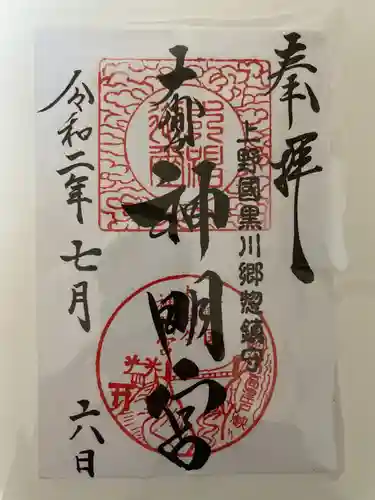 奉拝
上野國黒川郷惣鎮守
神明宮
令和二年七月
二六日